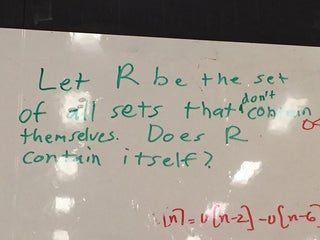 Let R be the set
of all sets that don't contain
themselves. Does R
contain itself?
[n] = u[n-2] - u[n-6]